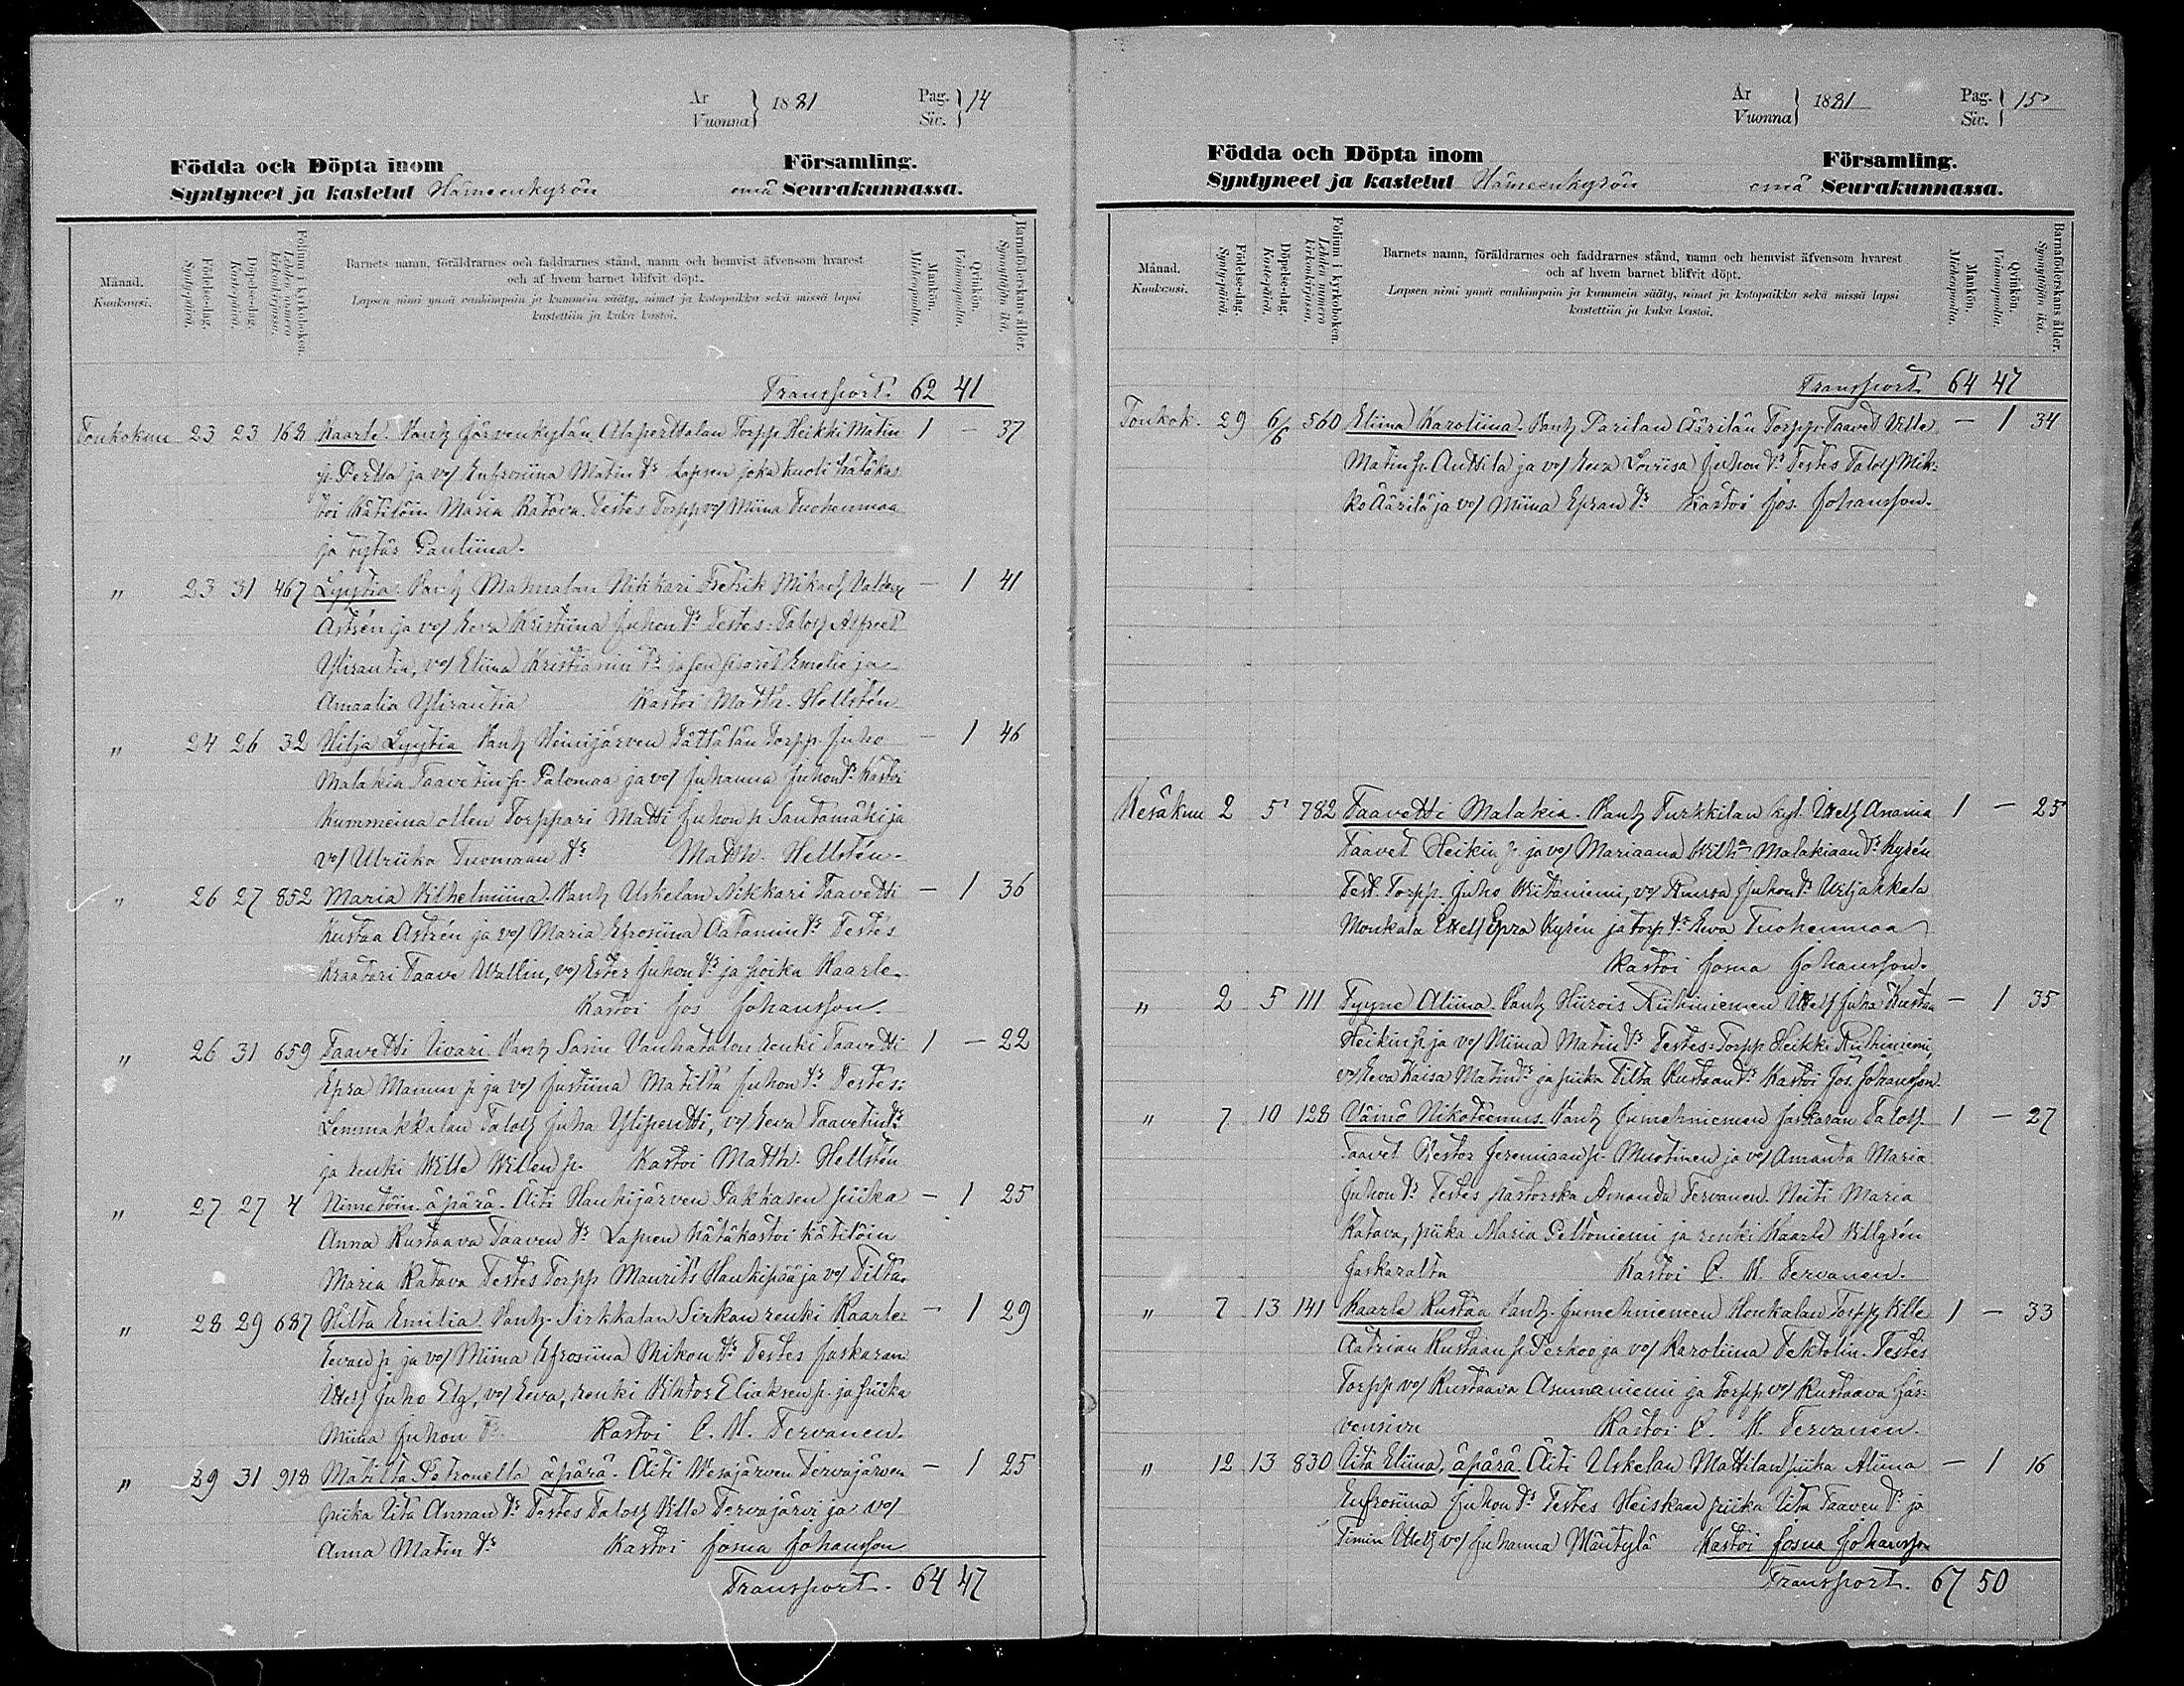 År
Vuonna } 1881
Pag.
Siv. } 14
Födda och Döpta inom Församling.
Syntyneet ja kastetut Hämeenkyrön emä Seurakunnassa.
Månad.
Kuukausi.
Födelse-dag.
Syntypäivä.
Döpelse-dag.
Kastepäivä.
Folium i kyrkoboken.
Lehden numero kirkonkirjassa.
Barnets namn, föräldrarnes och faddrarnes stånd, namn och hemvist äfvensom hvarest
och af hvem barnet blifvit döpt.
Lapsen nimi ynnä vanhimpain ja kummein sääty, nimet ja kotopaikka sekä missä lapsi
kastettiin ja kuka kastoi.
Mankön.
Miehenpuolia.
Qvinkön.
Vaimonpuolia.
Barnaföderskans ålder.
Synnyttäjän ikä.
Transport. 62 41
Toukokuu 23 23 168 Kaarle. Vanh Järvenkylän Alaperttalan Torpp Heikki Matin 1 – 37
p. Pertta ja vo/ Eufrosiina Matin tr Lapsen joka kuoli hätäkas
toi Kätilöin Maria Katava. Testes Torpp vo/ Miina Tuohenmaa
ja tytär Pauliina.
" 23 31 467 Lyytia. Vanh Mahnalan Nikkari Fretrik Mikael Valdem – 1 41
Astrén ja vo/ Eeva Kristiina Juhon tr Testes: Talolh Alfreet
Ylirantia, vo/ Eliina Kristianin tr ja sen sisaret Emelie ja
Amaalia Ylirantia Kastoi Matth. Hellstén
" 24 26 32 Hilja Lyytia Vanh Heinijärven Tättälän Torpp. Juho – 1 46
Malakia Taavetin p. Palomaa ja vo/ Juhanna Juhon tr Kastoi
Kummeina ollen Torppari Matti Juhon p Santamäki ja
vo/ Ulriika Tuomaan tr Matth. Hellstén.
" 26 27 852 Maria Vilhelmiina. Vanh Uskelan Nikkari Taavetti – 1 36
Kustaa Astrén ja vo/ Maria Efrosiina Aatamin tr Testes
Kraatari Taave Wallin, vo/ Ester Juhon tr ja poika Kaarle.
Kastoi Jos Johansson.
" 26 31 659 Taavetti Iivari Vanh Sasin Vanhatalon renki Taavetti 1 – 22
Epra Manun p ja vo/ Justiina Matilta Juhon tr Testes:
Lemmakkalan Talolh Juha Ylipentti, vo/ Eeva Taavetin tr
ja renki Wille Willen p. Kastoi Matth. Hellstén
" 27 27 4 Nimetöin äpärä. Äiti Haukijärven Pakkasen piika – 1 25
Anna Kustaava Taaven tr Lapsen hätäkastoi kätilöin
Maria Katava Testes Torpp Maurits Haukipää ja vo/ Tilta.
" 28 29 687 Hilta Emilia Vanh. Sirkkalan Sirkan renki Kaarle – 1 29
Eevan p ja vo/ Miina Efrosiina Mikon tr Testes Jaskaran
Itells Juho Elg, vo/ Eeva, renki Vihtor Eliaksen p. ja piika
Miina Juhon tr Kastoi C. M. Tervanen.
" 29 31 918 Matilta Petronella äpärä. Äiti Wesajärven Tervajärven – 1 25
piika Iita Annan tr Testes Talolh Ville Tervajärvi ja vo/
Anna Matin tr Kastoi Josua Johansson
Transport. 64 47
År
Vuonna } 1881
Pag.
Siv. } 15
Födda och Döpta inom Församling.
Syntyneet ja kastetut Hämeenkyrön emä Seurakunnassa.
Månad.
Kuukausi.
Födelse-dag.
Syntypäivä.
Döpelse-dag.
Kastepäivä.
Folium i kyrkoboken.
Lehden numero kirkonkirjassa.
Barnets namn, föräldrarnes och faddrarnes stånd, namn och hemvist äfvensom hvarest
och af hvem barnet blifvit döpt.
Lapsen nimi ynnä vanhimpain ja kummein sääty, nimet ja kotopaikka sekä missä lapsi
kastettiin ja kuka kastoi.
Mankön.
Miehenpuolia.
Qvinkön.
Vaimonpuolia.
Barnaföderskans ålder.
Synnyttäjän ikä.
Transport 64 47
Toukok. 29 6/6 560 Eliina Karoliina. Vanh Parilan Äärilän Torpp. Taavet Ville – 1 34
Matin p. Anttila ja vo/ Eeva Loviisa Juhon tr Testes Talolh Mik-
ko Äärilä ja vo/ Miina Epran tr Kastoi Jos. Johansson.
Kesäkuu 2 5 782 Taavetti Malakia. Vanh Turkkilan kyl. Itells Anania 1 – 25
Taavet Heikin p. ja vo/ Mariaana Wilha Malakiaan tr Kyrén
Test. Torpp. Juho Wiitaniemi, vo/ Ruusa Juhon tr Viljakkala
Monkala Itells Epra Kyrén ja torp tr Eeva Tuohenmaa
Kastoi Josua Johansson.
" 2 5 111 Tyyne Aliina. Vanh Hiirois Riihiniemen Itells Juha Kustaa – 1 35
Heikin p ja vo/ Miina Matin tr Testes: Torpp Heikki Riihiniemi,
vo/ Eeva Kaisa Matin tr ja piika Tilta Kustaan tr Kastoi Jos. Johansson.
" 7 10 128 Väinö Nikoteemus. Vanh Jumehniemen Jaskaran Talolh. 1 – 27
Taavet Nestor Jeremiaan p. Mustinen ja vo/ Amanta Maria
Juhon tr Testes pastorska Amanda Tervanen. Neiti Maria
Katava, piika Maria Peltoniemi ja renki Kaarle Villgrén
Jaskaralta Kastoi C. M. Tervanen.
" 7 13 141 Kaarle Kustaa Vanh. Jumehniemen Honkalan Torpp Ville 1 – 33
Aatrian Kustaan p. Perhoo ja vo/ Karoliina Tehtolin. Testes
Torpp vo/ Kustaava Asumaniemi ja torpp vo/ Kustaava Jär-
vensivu Kastoi C. M. Tervanen.
" 12 13 830 Iita Eliina, äpärä. Äiti Uskelan Mattilan piika Aliina – 1 16
Eufrosiina Juhon tr Testes Heiskan piika Iita Taaven tr ja
Timin Itells vo/ Juhanna Mäntylä Kastoi Josua Johansson
Transport. 67 50